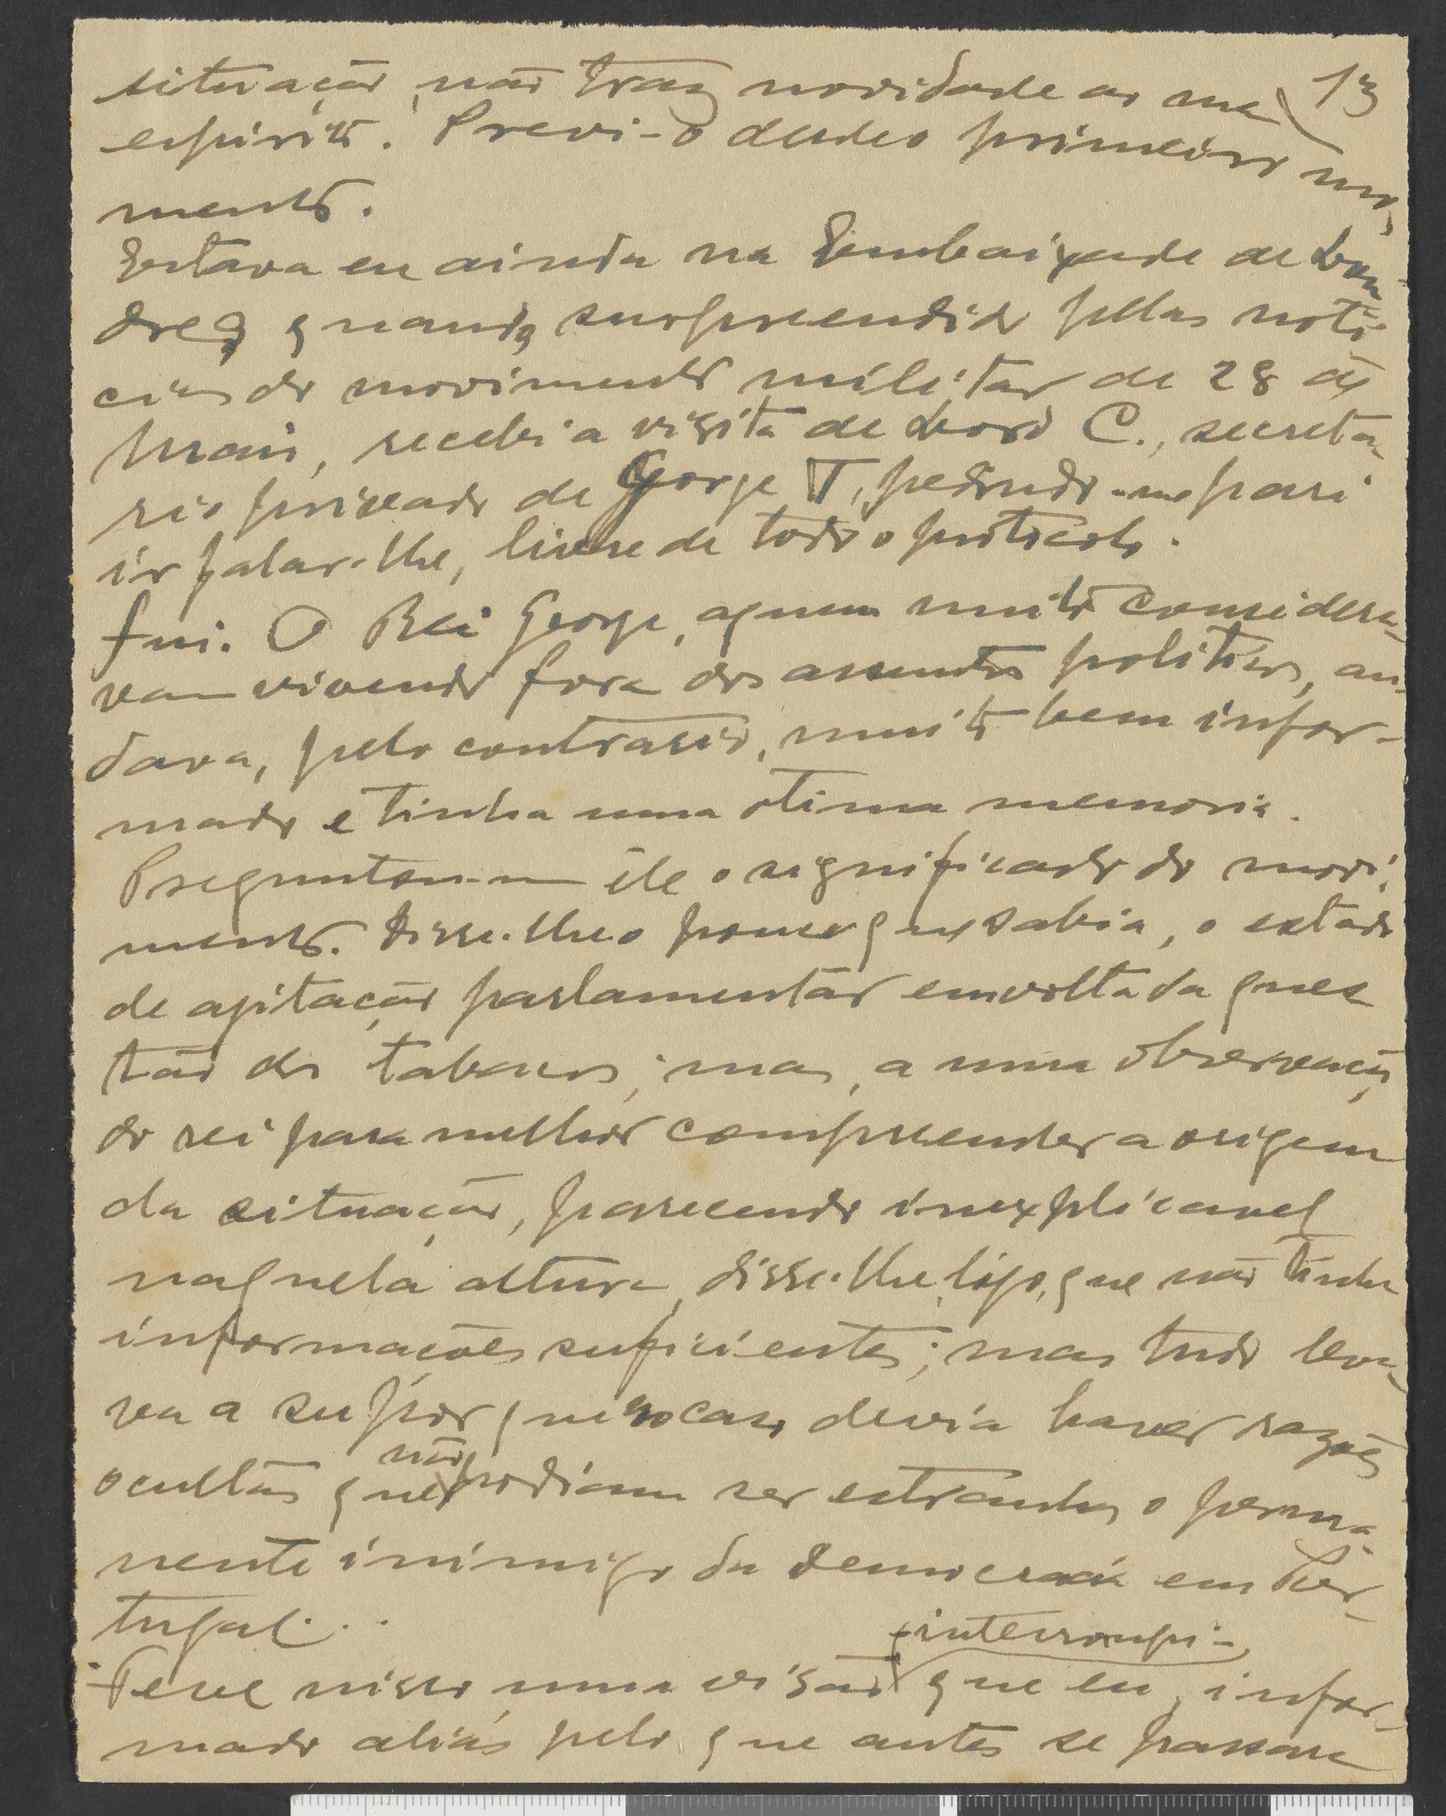 13
situação, não traz novidade ao meu
espirito. Previ-o desde o primeiro mo-
mento.
Estava eu ainda na Embaixada de Lon-
dres quando, surpreendido pelas noti-
cias do movimento militar de 28 de
Maio, recebi a visita de Lord C., secreta-
rio privado de George V, pedindo-me para
ir falar-lhe, livre de todo o protocolo.
Fui. O Rei George, a quem muito considera-
vam vivendo fora dos assuntos politicos, an-
dava, pelo contrario, muito bem infor-
mado e tinha uma otima memoria.
Preguntou-me êle o significado do movi-
mento. Disse-lhe o pouco que sabia, o estado
de agitação parlamentar em volta da ques
tão dos tabacos; mas, a uma observação
do rei para melhor compreender a origem
da situação, parecendo inexplicavel
naquela altura, disse-lhe, logo, que não tinha
informações suficientes; mas tudo leva-
va a supôr que no caso devia haver razões
ocultas que não podiam ser estranhas o perma-
nente inimigo da democracia em Por-
tugal...
- interrompi -
- Teve nisso uma visão que eu, infor-
mado aliás pelo que antes se passara